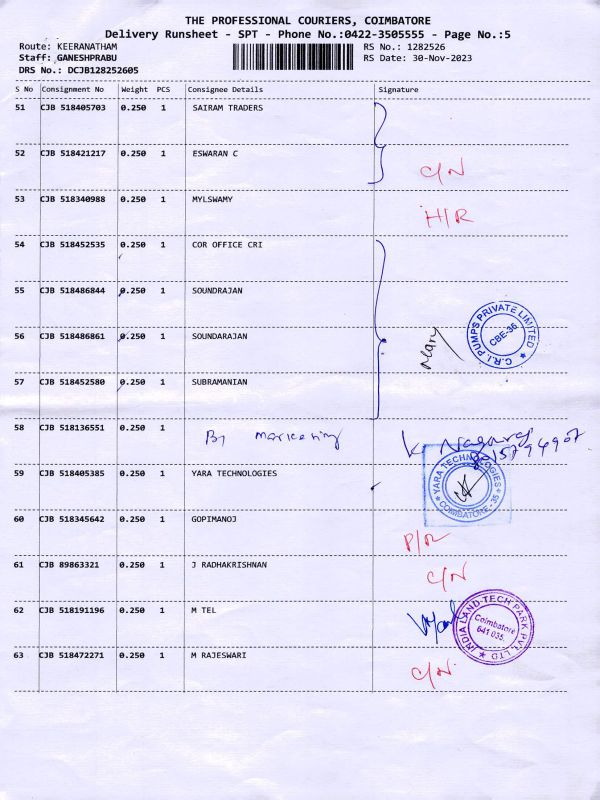 THE PROFESSIONAL COURIERS, COIMBATORE
Delivery Runsheet - SPT - Phone No.:0422-3505555 - Page No.:5
Route: KEERANATHAM
RS No.: 1282526
Staff: GANESHPRABU
RS Date: 30-Nov-2023
DRS No.: DCJB128252605
S No Consignment No Weight PCS Consignee Details Signature
51 CJB 518405703 0.250 1 SAIRAM TRADERS
52 CJB 518421217 0.250 1 ESWARAN C
C/N
53 CJB 518340988 0.250 1 MYLSWAMY
H/R
54 CJB 518452535 0.250 1 COR OFFICE CRI
55 CJB 518486844 0.250 1 SOUNDRAJAN
56 CJB 518486861 0.250 1 SOUNDARAJAN
C.R.I PUMPS PRIVATE LIMITED
CBE-35
57 CJB 518452580 0.250 1 SUBRAMANIAN
58 CJB 518136551 0.250 1
By Marketing
K Nagaraj
59 CJB 518405385 0.250 1 YARA TECHNOLOGIES
YARA TECHNOLOGIES
COIMBATORE - 35
60 CJB 518345642 0.250 1 GOPIMANOJ
P/R
61 CJB 89863321 0.250 1 J RADHAKRISHNAN
C/N
62 CJB 518191196 0.250 1 M TEL
INDIA LAND TECH PARK PVT. LTD
Coimbatore
641 035
63 CJB 518472271 0.250 1 M RAJESWARI
C/N